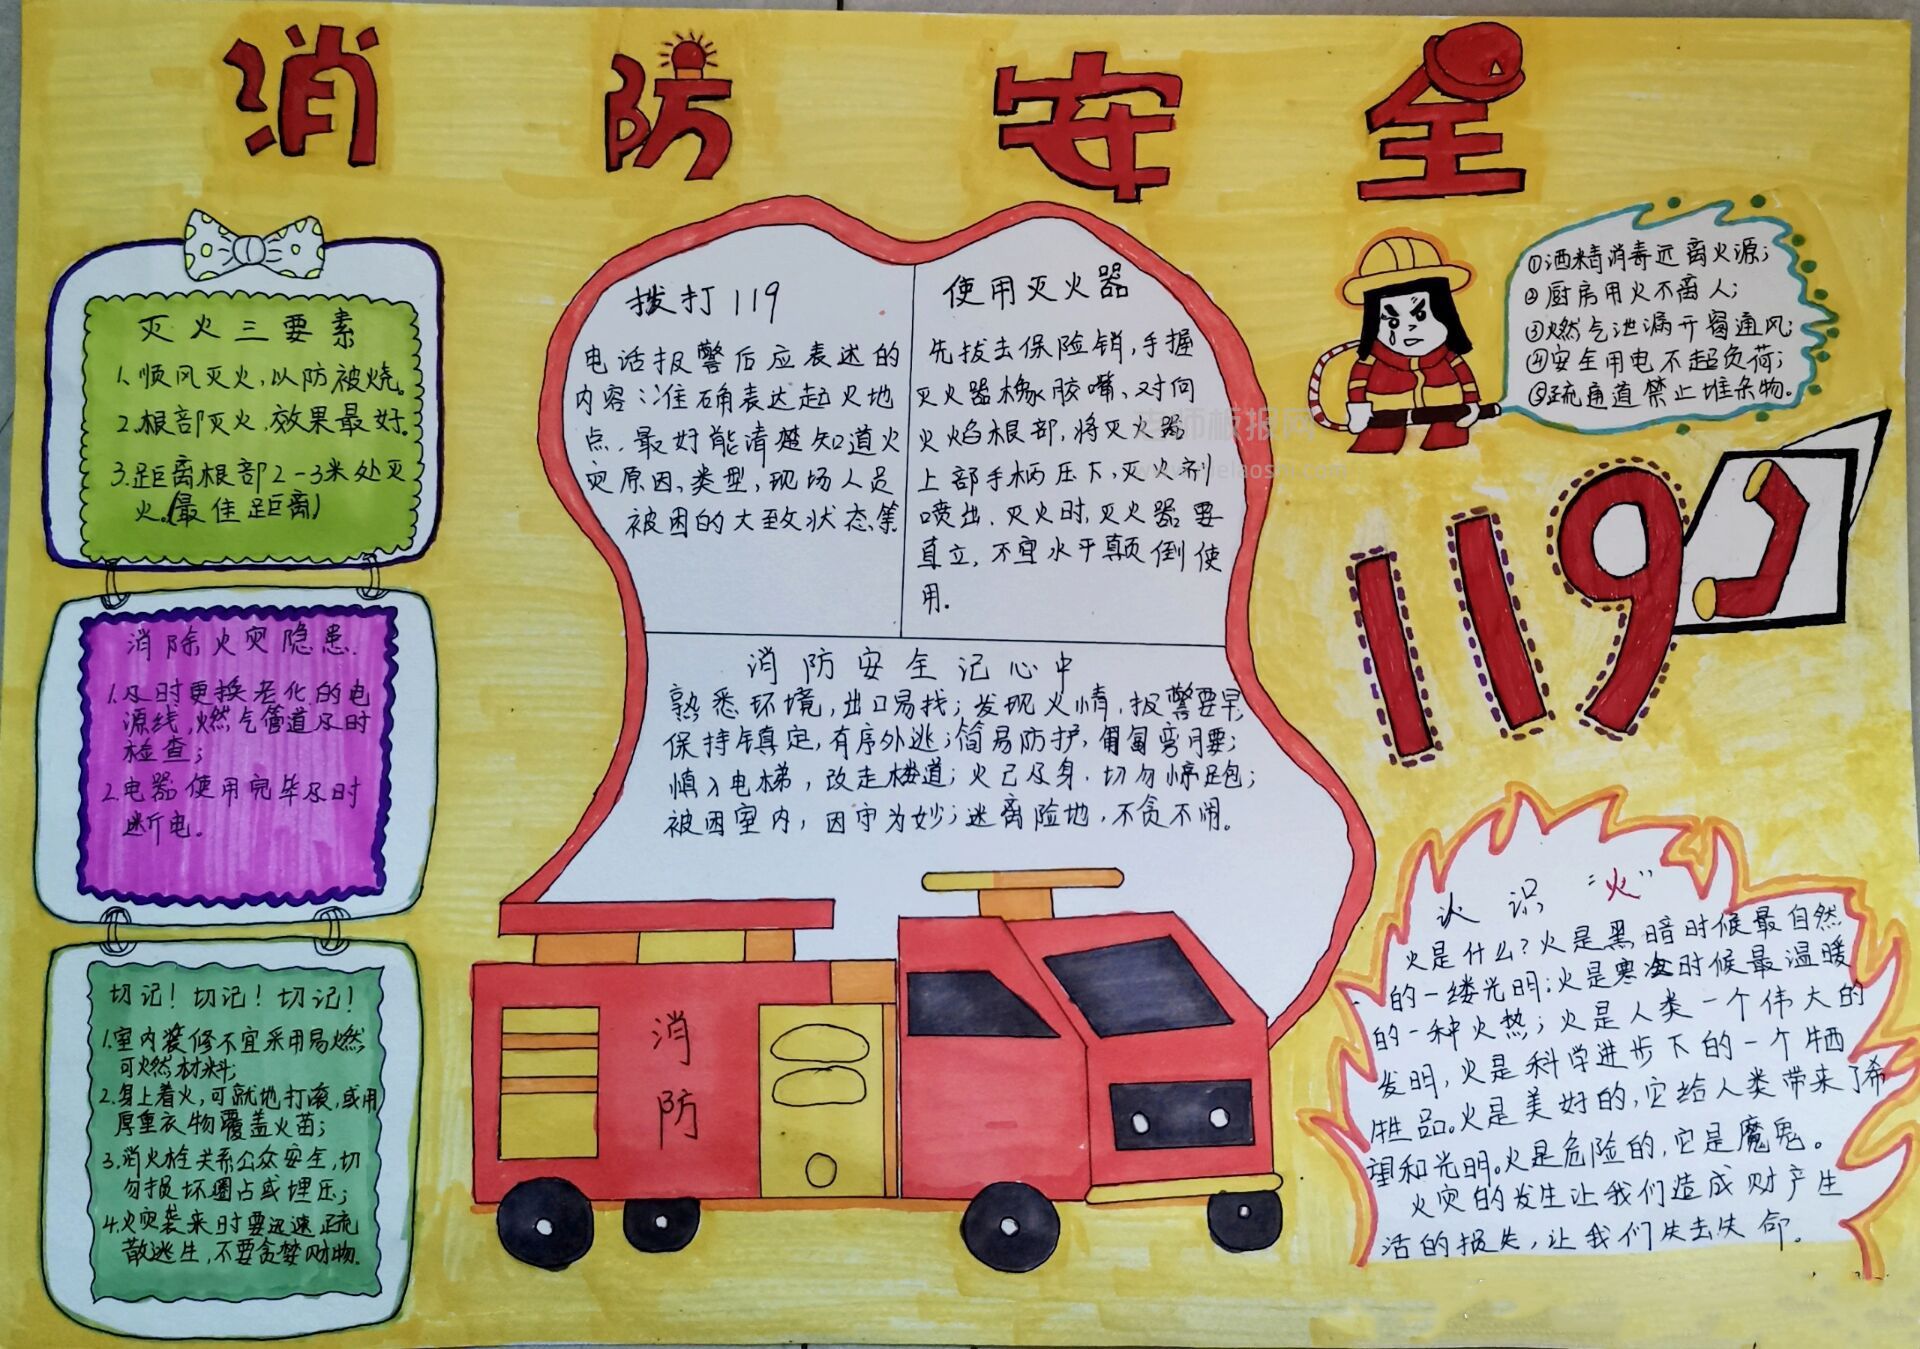 消防安全
灭火三要素
1.顺风灭火,以防被烧。
2.根部灭火,效果最好。
3.距离根部2-3米处灭
火。(最佳距离)
消除火灾隐患.
1.及时更换老化的电
源线,燃气管道及时
检查;
2.电器使用完毕及时
断电。
切记!切记!切记!
1.室内装修不宜采用易燃
可燃材料;
2.身上着火,可就地打滚,或用
厚重衣物覆盖火苗;
3.消火栓关系公众安全,切
勿损坏圈占或埋压;
4.火灾袭来时要迅速疏
散逃生,不要贪婪财物.
拨打119
电话报警后应表述的
内容:准确表达起火地
点.最好能清楚知道火
灾原因、类型,现场人员
被困的大致状态等
使用灭火器
先拔去保险销,手握
灭火器橡胶嘴,对向
火焰根部,将灭火器
上部手柄压下,灭火剂
喷出.灭火时,灭火器要
直立,不宜水平颠倒使
用.
消防安全记心中
熟悉环境,出口易找;发现火情,报警要早,
保持镇定,有序外逃;简易防护,匍匐弯腰;
慎入电梯,改走楼道;火已及身.切勿惊跑;
被困室内,因守为妙;逃离险地,不贪不闹。
消
防
①酒精消毒远离火源;
②厨房用火不离人;
③燃气泄漏开窗通风;
④安全用电不超负荷;
⑤疏通道禁止堆杂物.
老师板报网
119
认识“火”
火是什么?火是黑暗时候最自然
的一缕光明;火是寒冷时候最温暖
的一种火热;火是人类一个伟大的
发明,火是科学进步下的一个牺
牲品。火是美好的,它给人类带来了希
望和光明。火是危险的,它是魔鬼。
火灾的发生让我们造成财产生
活的损失,让我们失去失命.